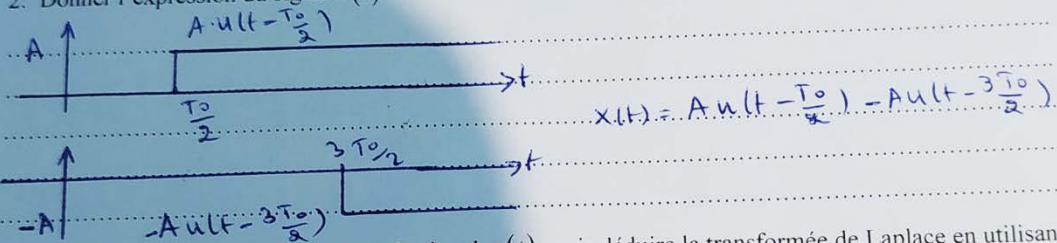 2. Donner l'expression
A
A.u(t - T0/2)
t
T0/2
x(t) = A u(t - T0/2) - A u(t - 3 T0/2)
3 T0/2
t
-A
-A u(t - 3 T0/2)
déduire la transformée de Laplace en utilisan